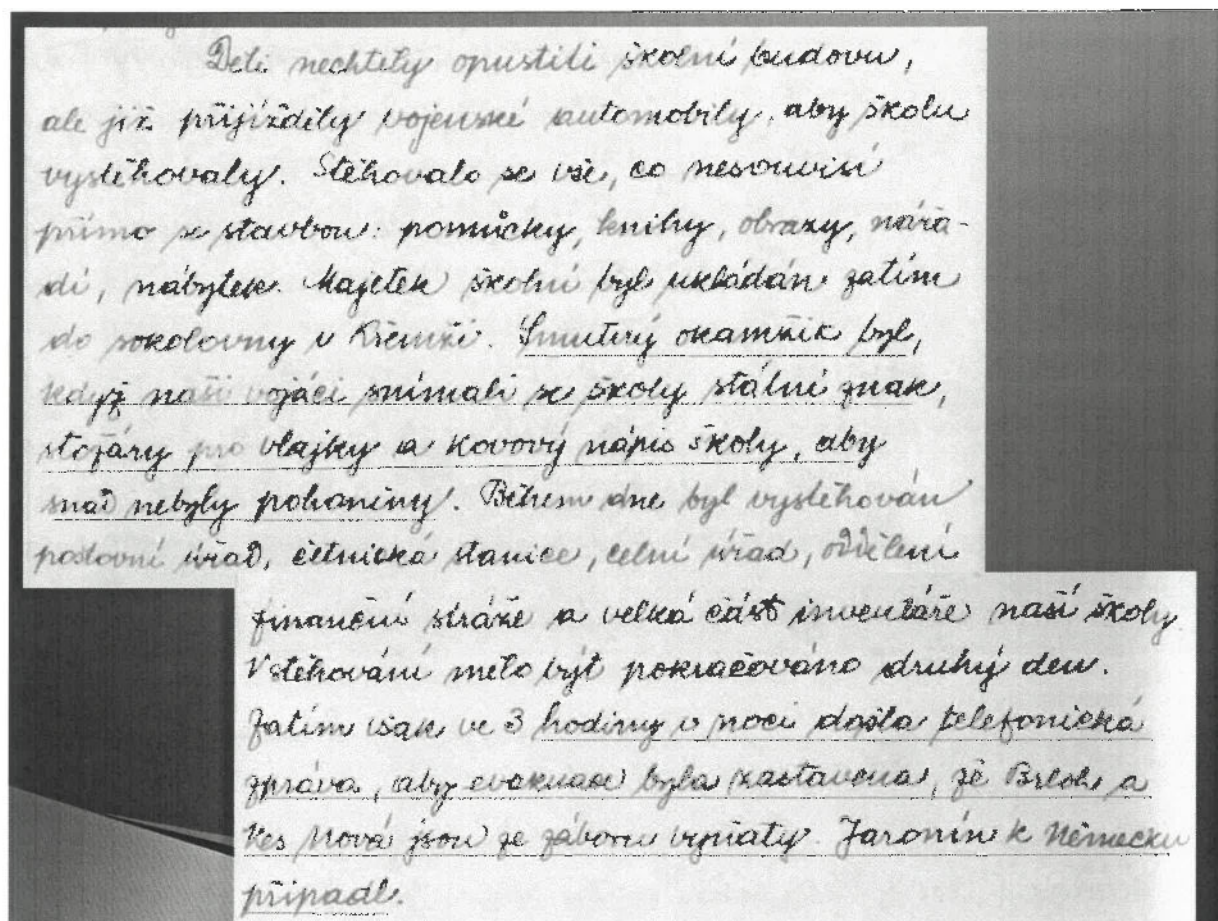 Děti nechtěly opustiti školní budovu,
ale již přijížděly vojenské automobily, aby školu
vystěhovaly. Stěhovalo se vše, co nesouvisí
přímo se stavbou: pomůcky, knihy, obrazy, nářa-
dí, nábytek. Majetek školní byl ukládán zatím
do sokolovny v Křemži. Smutný okamžik byl,
když naši vojáci snímali se školy státní znak,
stožáry pro vlajky a kovový nápis školy, aby
snad nebyly pohaněny. Během dne byl vystěhován
poštovní úřad, četnická stanice, celní úřad, oddělení
finanční stráže a velká část inventáře naší školy.
V stěhování mělo být pokračováno druhý den.
Zatím však ve 3 hodiny v noci došla telefonická
zpráva, aby evakuace byla zastavena, že Brloh a
Ves Nová jsou ze záboru vyňaty. Jaronín k Německu
připadl.